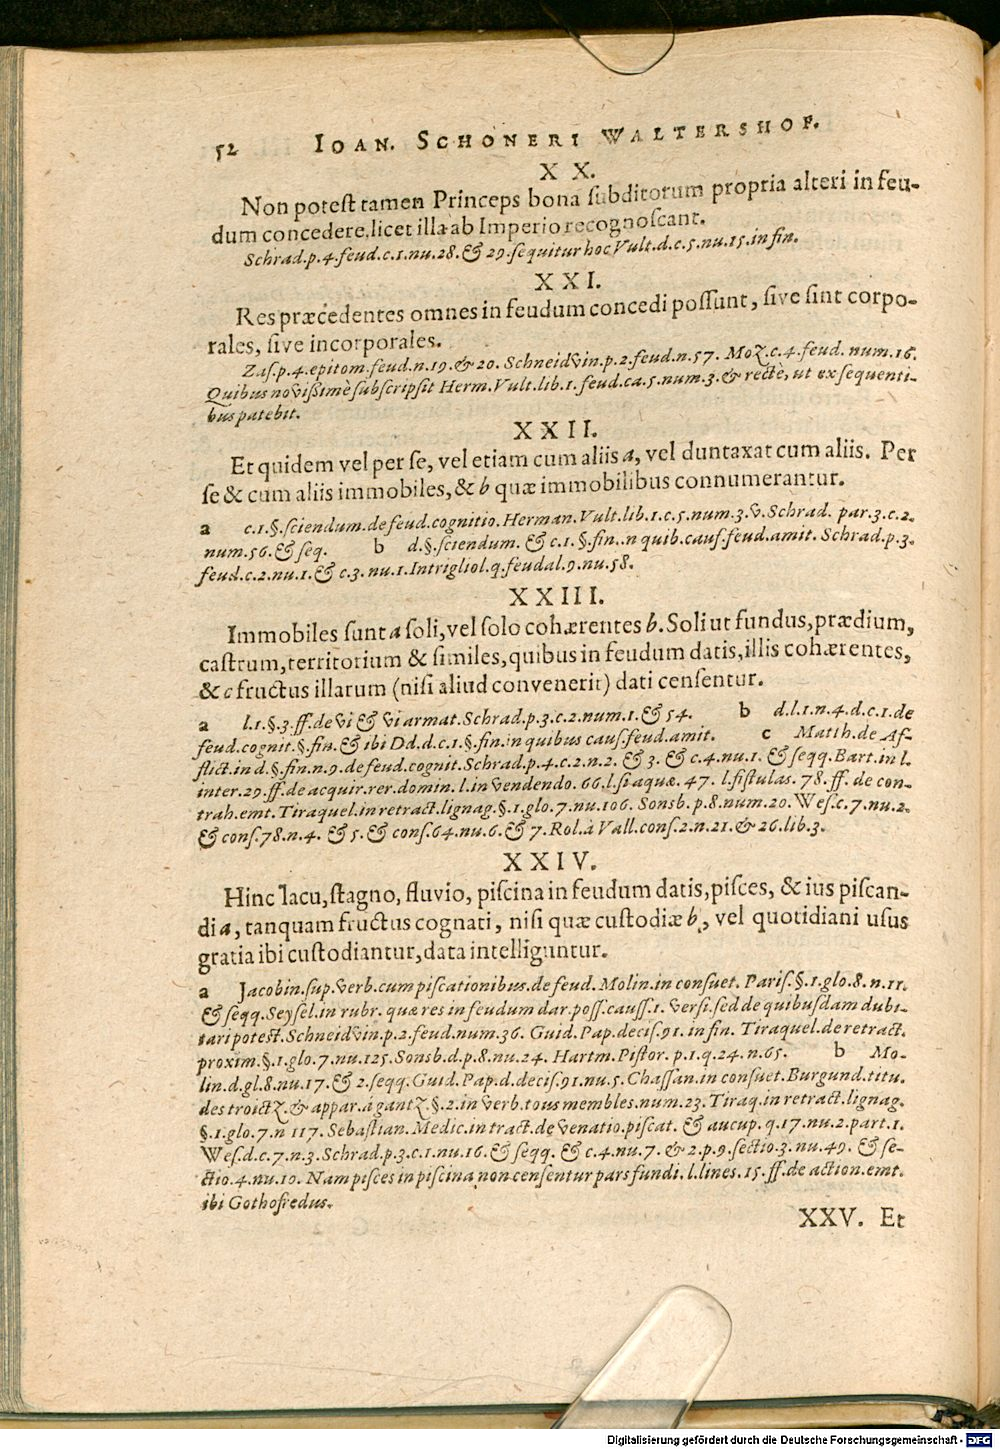 52 IOAN. SCHONERI WALTERSHOF.
XX.
Non potest tamen Princeps bona subditorum propria alteri in feu-
dum concedere, licet illa ab Imperio recognoscant.
Schrad.p.4.feud.c.1.nu.28.& 29.sequitur hoc Vult.d.c.5.nu.15.in fin.
XXI.
Res præcedentes omnes in feudum concedi possunt, sive sint corpo-
rales, sive incorporales.
Zas.p.4.epitom.feud.n.19.& 20. Schneidvin.p.2.feud.n.57. Moz.c.4.feud. num.16.
Quibus novissimè subscripsit Herm.Vult.lib.1.feud.ca.5.num.3.& rectè, ut ex sequenti-
bus patebit.
XXII.
Et quidem vel per se, vel etiam cum aliis a, vel duntaxat cum aliis. Per
se & cum aliis immobiles, & b quæ immobilibus connumerantur.
a c.1.§.sciendum.de feud.cognitio.Herman.Vult.lib.1.c.5.num.3.v.Schrad. par.3.c.2.
num.56.& seq. b d.§.sciendum. & c.1.§.fin..n quib.caus.feud.amit. Schrad.p.3.
feud.c.2.nu.1.& c.3. nu.1.Intrigliol.q.feudal.9.nu.58.
XXIII.
Immobiles sunt a soli, vel solo cohærentes b. Soli ut fundus, prædium,
castrum, territorium & similes, quibus in feudum datis, illis cohærentes,
& c fructus illarum (nisi aliud convenerit) dati censentur.
a l.1.§.3.ff.de vi & vi armat.Schrad.p.3.c.2.num.1.& 54. b d.l.1.n.4.d.c.1.de
feud.cognit.§.fin.& ibi Dd.d.c.1.§.fin.in quibus caus.feud.amit. c Matth.de Af-
flict.in d.§.fin.n.9.de feud.cognit.Schrad.p.4.c.2.n.2. & 3. & c.4.nu.1. & seqq.Bart.in l.
inter.29.ff.de acquir.rer.domin. l.in vendendo. 66.l.si aquæ. 47. l.fistulas. 78. ff. de con-
trah.emt.Tiraquel.in retract.lignag.§.1.glo.7.nu.106. Sonsb.p.8.num.20.Wes.c.7.nu.2.
& cons.78.n.4. & 5.& cons.64.nu.6.& 7.Rol.à Vall.cons.2.n.21.& 26.lib.3.
XXIV.
Hinc lacu, stagno, fluvio, piscina in feudum datis, pisces, & ius piscan-
di a, tanquam fructus cognati, nisi quæ custodiæ b, vel quotidiani usus
gratia ibi custodiantur, data intelliguntur.
a Jacobin.sup.verb.cum piscationibus.de feud. Molin.in consuet. Paris.§.1.glo.8.n.11.
& seqq.Seysel.in rubr. quæ res in feudum dar.poss.causs.1. versi.sed de quibusdam dubi-
tari potest.Schneidvin.p.2.feud.num.36. Guid. Pap.decis.91.in fin. Tiraquel.de retract.
proxim.§.1.glo.7.nu.125.Sonsb.d.p.8.nu.24. Hartm.Pistor. p.1.q.24.n.65. b Mo-
lin.d.gl.8.nu.17.& 2.seqq.Guid.Pap.d.decis.91.nu.5.Chassan.in consuet.Burgund.titu.
des troictz.& appar.ágantz.§.2.in verb.tous membles.num.23.Tiraq.in retract.lignag.
§.1.glo.7.n 117.Sebastian.Medic.in tract.de venatio.piscat. & aucup.q.17.nu.2.part.1.
Wes.d.c.7.n.3.Schrad.p.3.c.1.nu.16.& seqq. & c.4.nu.7. & 2.p.9.sectio.3.nu.49. & se-
ctio.4.nu.10. Nam pisces in piscina non censentur pars fundi. l.lines.15.ff.de action.emt.
ibi Gothofredus.
XXV. Et
Digitalisierung gefördert durch die Deutsche Forschungsgemeinschaft - DFG